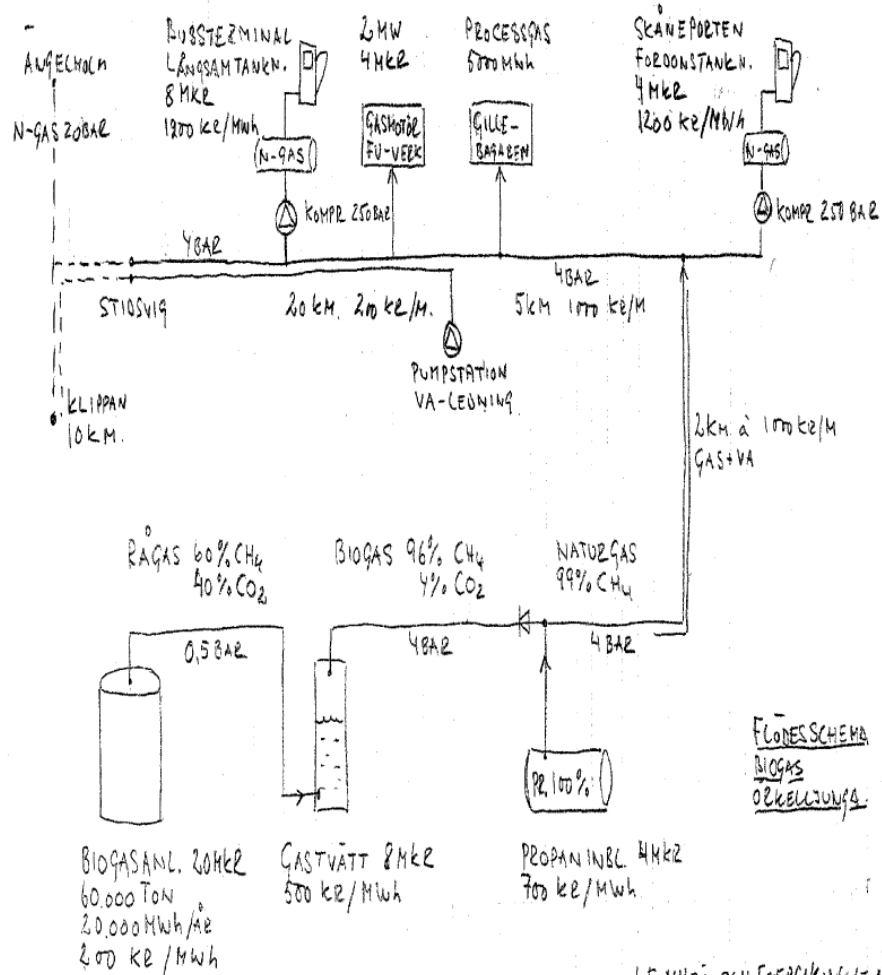 ÄNGELHOLM
N-GAS 20BAR
BUSSTERMINAL
LÅNGSAMTANKN.
8 MKR
1200 KR/MWh
N-GAS
KOMPR 250BAR
2MW
4MKR
GASMOTOR
FV-VERK
PROCESSGAS
5000MWh
GILLE-
BAGAREN
SKÅNEPORTEN
FORDONSTANKN.
4 MKR
1200 KR/MWh
N-GAS
KOMPR 250 BAR
4BAR
4BAR
STIDSVIG
20KM. 200KR/M.
5KM 1000 KR/M
PUMPSTATION
VA-LEDNING
KLIPPAN
10KM.
2KM à 1000KR/M
GAS+VA
RÅGAS 60% CH4
40% CO2
BIOGAS 96% CH4
4% CO2
NATURGAS
99% CH4
0,5 BAR
4BAR
4 BAR
PR. 100%
FLÖDESSCHEMA
BIOGAS
ÖRKELLJUNGA.
BIOGASANL. 20MKR
60.000 TON
20.000MWh/ÅR
200 KR /MWh
GASTVÄTT 8MKR
500 KR/MWh
PROPAN INBL. 4MKR
700 KR/MWh